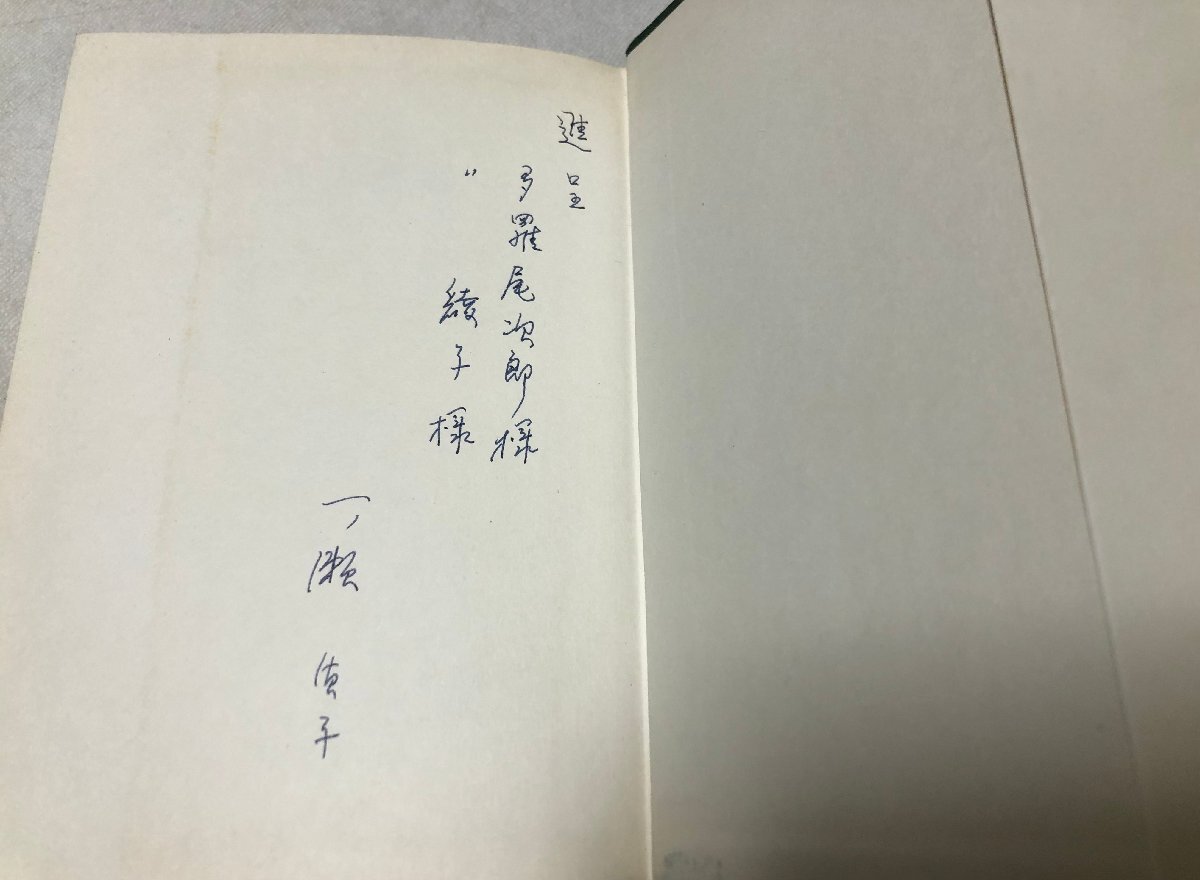 進呈
多羅尾次郎様
〃 綾子様
一ノ瀬 貞子